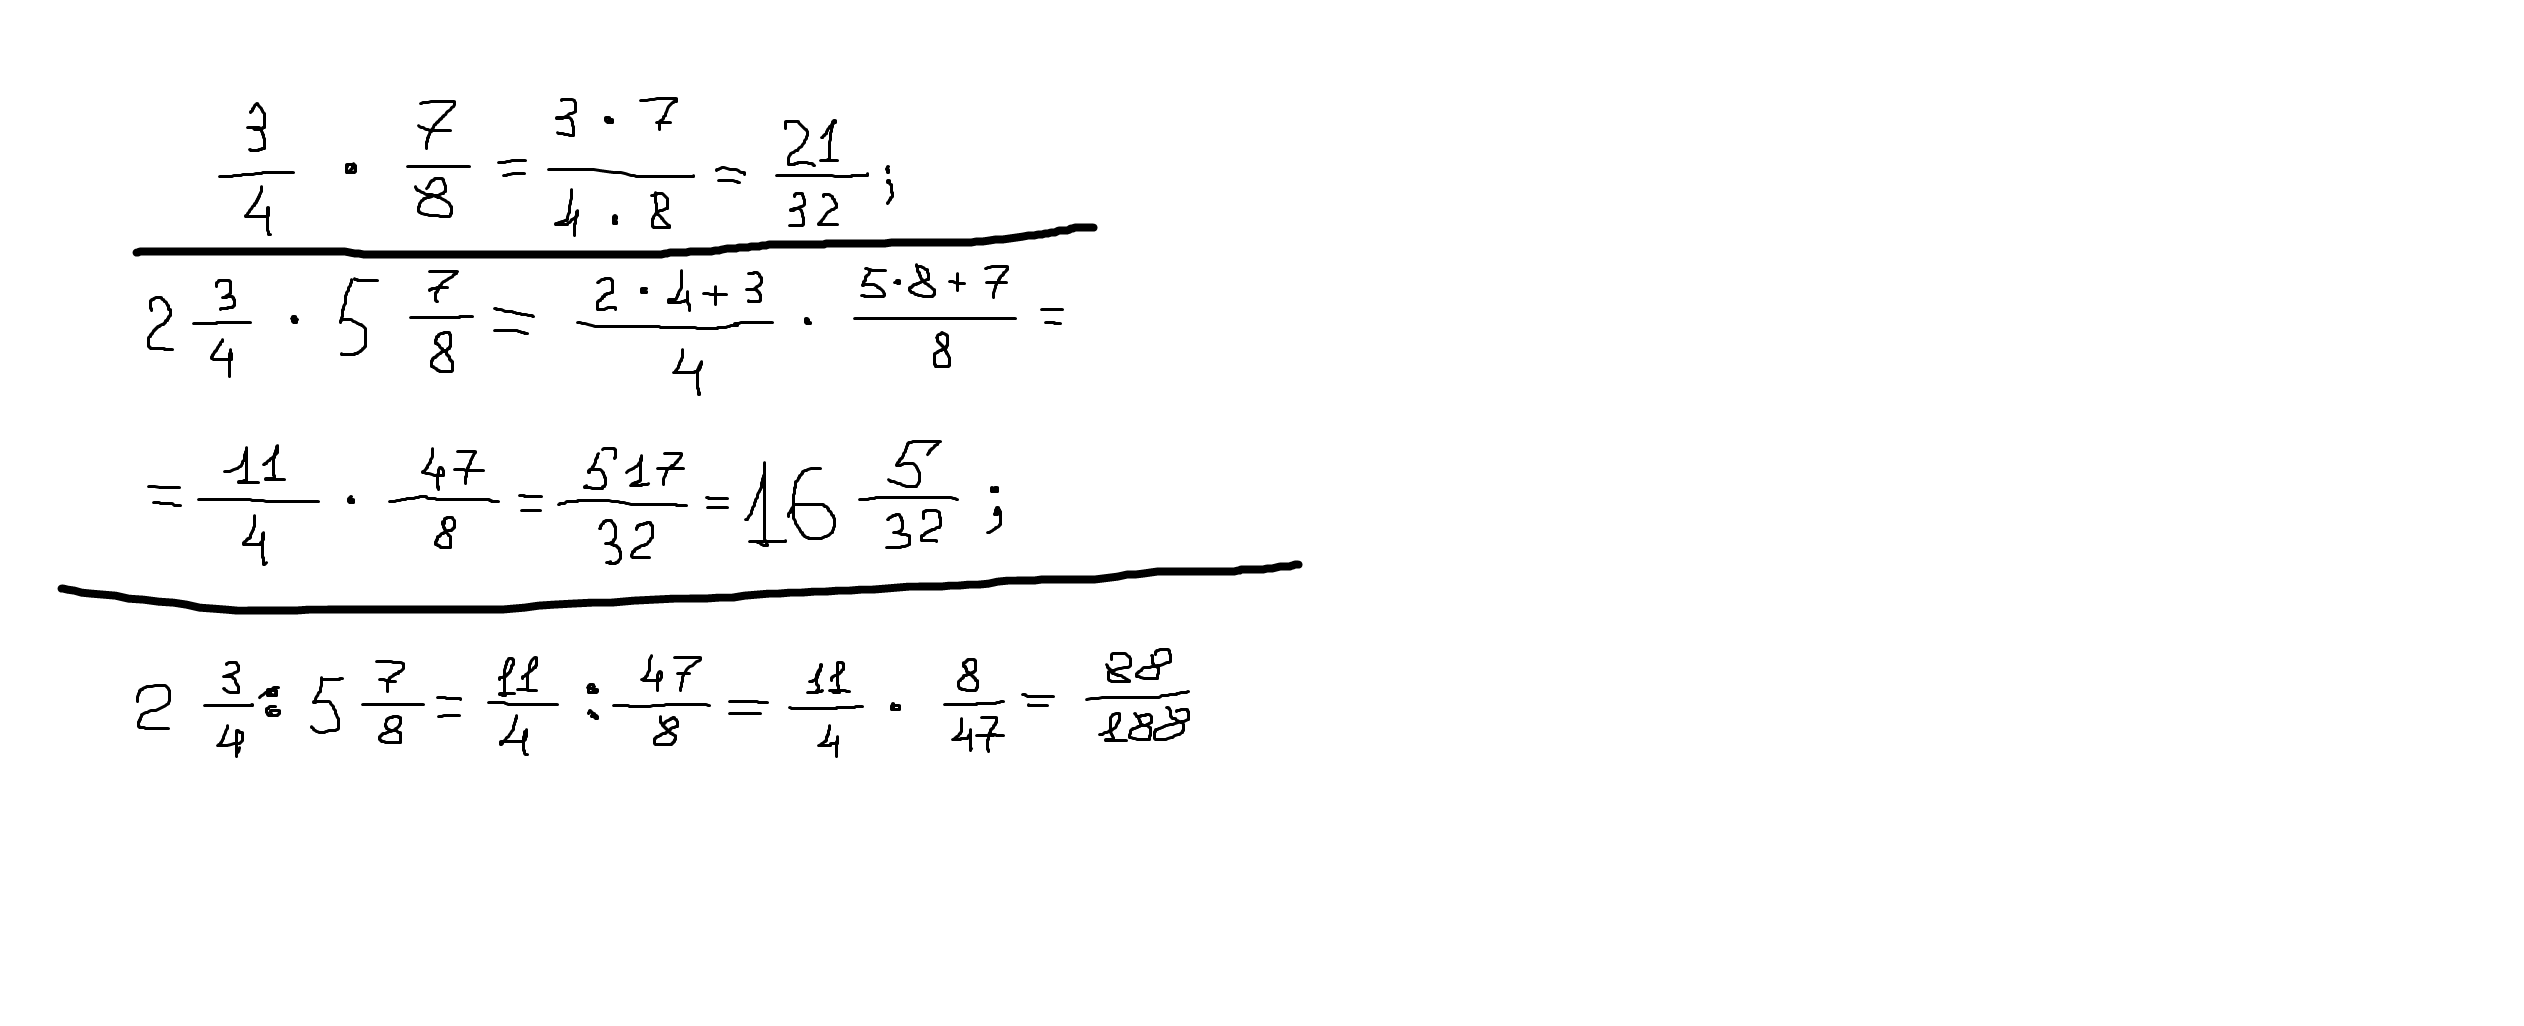 3/4 · 7/8 = (3 · 7)/(4 · 8) = 21/32 ;
2 3/4 · 5 7/8 = (2 · 4 + 3)/4 · (5 · 8 + 7)/8 =
= 11/4 · 47/8 = 517/32 = 16 5/32 ;
2 3/4 : 5 7/8 = 11/4 : 47/8 = 11/4 · 8/47 = 88/188